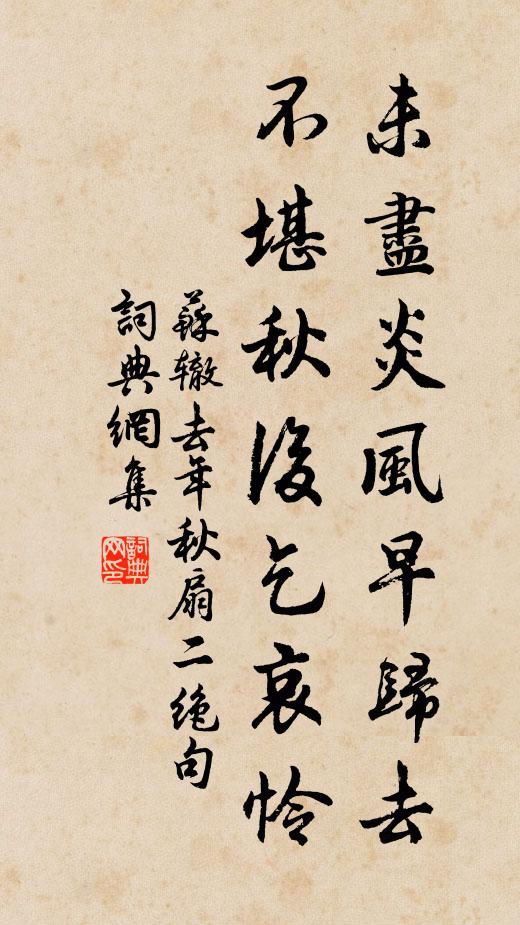 未盡炎風早歸去
不堪秋後乞哀怜
蘇辙去年秋扇二绝句
詞典網集
詞典网印